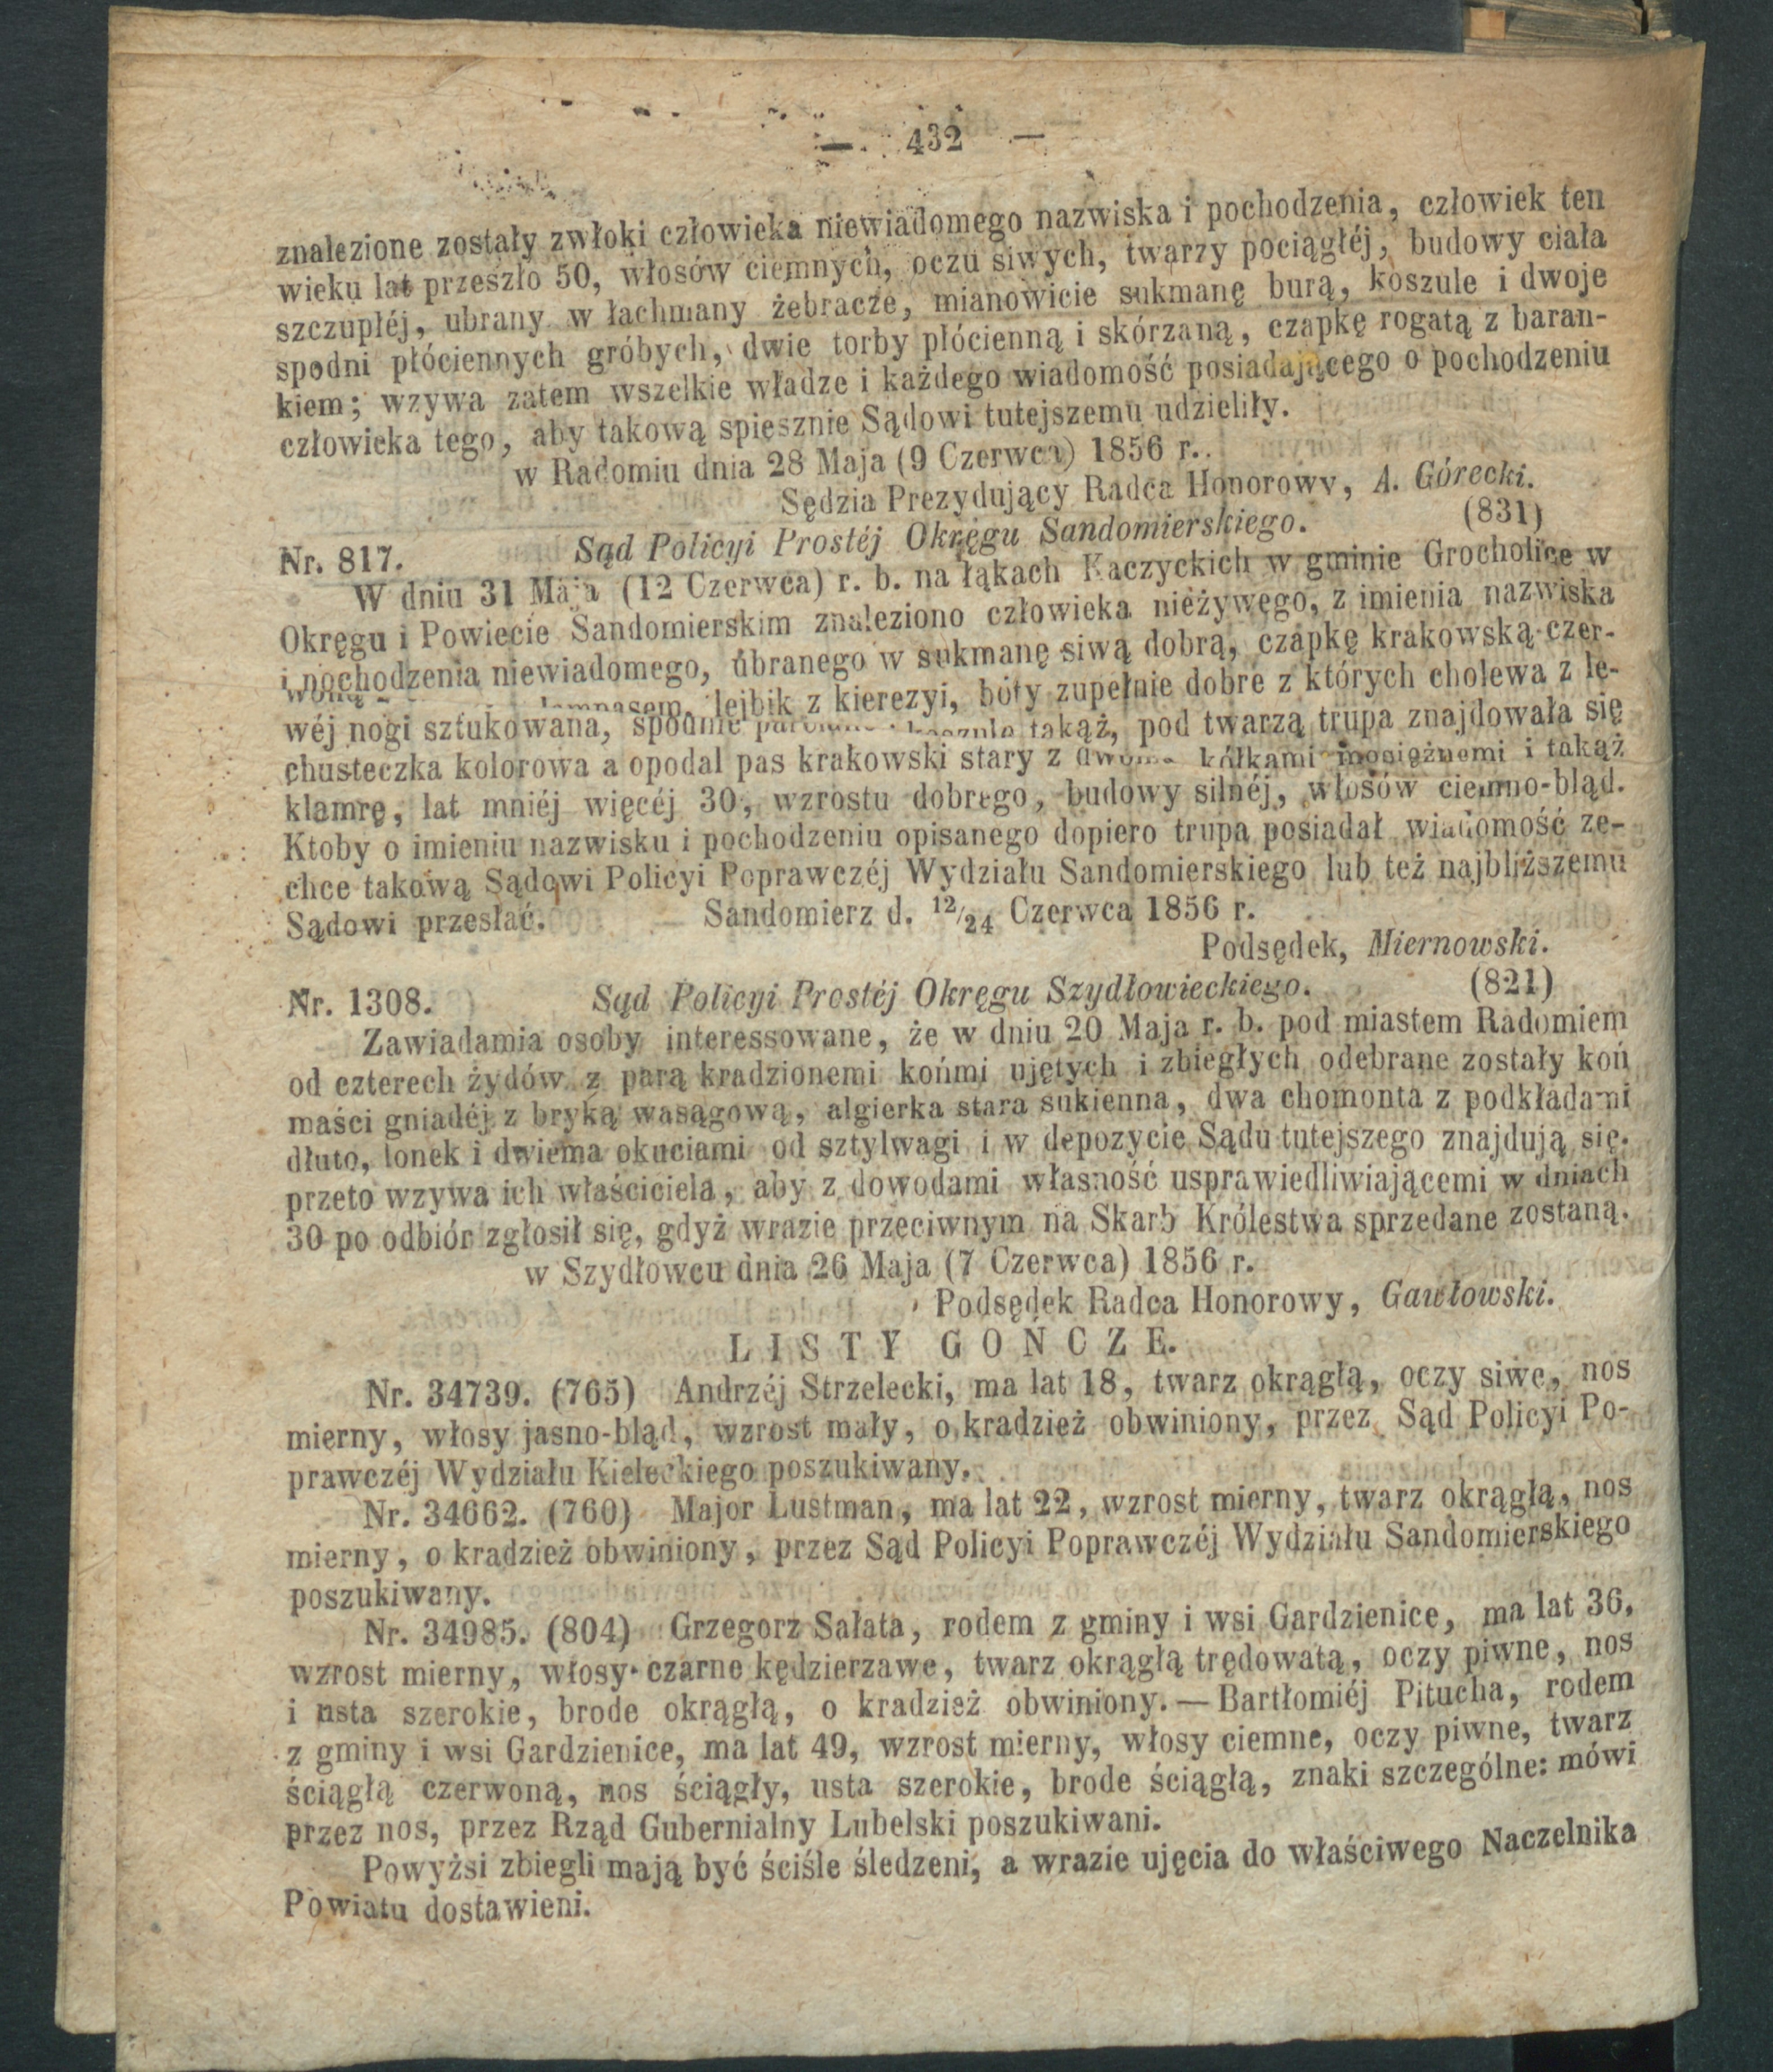 — 432 —
znalezione zostały zwłoki człowieka niewiadomego nazwiska i pochodzenia, człowiek ten
wieku lat przeszło 50, włosów ciemnych, oczu siwych, twarzy pociągłéj, budowy ciała
szczupłéj, ubrany w łachmany żebracze, mianowicie sukmanę burą, koszule i dwoje
spodni płóciennych gróbych, dwie torby płócienną i skórzaną, czapkę rogatą z baran-
kiem; wzywa zatem wszelkie władze i każdego wiadomość posiadającego o pochodzeniu
człowieka tego, aby takową spiesznie Sądowi tutejszemu udzieliły.
w Radomiu dnia 28 Maja (9 Czerwca) 1856 r.
Sędzia Prezydujący Radca Honorowy, A. Górecki.
Nr. 817. Sąd Policyi Prostéj Okręgu Sandomierskiego. (831)
W dniu 31 Maja (12 Czerwca) r. b. na łąkach Kaczyckich w gminie Grocholice w
Okręgu i Powiecie Sandomierskim znaleziono człowieka nieżywego, z imienia nazwiska
i pochodzenia niewiadomego, úbranego w sukmanę siwą dobrą, czapkę krakowską czer-
woną lejbik z kierezyi, bóty zupełnie dobre z których cholewa z le-
wéj nogi sztukowana, spodnie takąż, pod twarzą trupa znajdowała się
chusteczka kolorowa a opodal pas krakowski stary z kółkami mosiężnemi i takąż
klamrę, lat mniéj więcéj 30, wzrostu dobrego, budowy silnéj, włosów ciemno-bląd.
Ktoby o imieniu nazwisku i pochodzeniu opisanego dopiero trupa posiadał wiadomość ze-
chce takową Sądowi Policyi Poprawczéj Wydziału Sandomierskiego lub też najbliższemu
Sądowi przesłać. Sandomierz d. 12/24 Czerwca 1856 r.
Podsędek, Miernowski.
Nr. 1308. Sąd Policyi Prostéj Okręgu Szydłowieckiego. (821)
Zawiadamia osoby interessowane, że w dniu 20 Maja r. b. pod miastem Radomiem
od czterech żydów z parą kradzionemi końmi ujętych i zbiegłych odebrane zostały koń
maści gniadéj z bryką wasągową, algierka stara sukienna, dwa chomonta z podkładami
dłuto, lonek i dwiema okuciami od sztylwagi i w depozycie Sądu tutejszego znajdują się.
przeto wzywa ich właściciela, aby z dowodami własność usprawiedliwiającemi w dniach
30 po odbiór zgłosił się, gdyż wrazie przeciwnym na Skarb Królestwa sprzedane zostaną.
w Szydłowcu dnia 26 Maja (7 Czerwca) 1856 r.
Podsędek Radca Honorowy, Gawłowski.
LISTY GOŃCZE.
Nr. 34739. (765) Andrzéj Strzelecki, ma lat 18, twarz okrągłą, oczy siwe, nos
mierny, włosy jasno-bląd, wzrost mały, o kradzież obwiniony, przez Sąd Policyi Po-
prawczéj Wydziału Kieleckiego poszukiwany.
Nr. 34662. (760) Major Lustman, ma lat 22, wzrost mierny, twarz okrągłą, nos
mierny, o kradzież obwiniony, przez Sąd Policyi Poprawczéj Wydziału Sandomierskiego
poszukiwany.
Nr. 34985. (804) Grzegorz Sałata, rodem z gminy i wsi Gardzienice, ma lat 36,
wzrost mierny, włosy czarne kędzierzawe, twarz okrągłą trędowatą, oczy piwne, nos
i usta szerokie, brode okrągłą, o kradzież obwiniony. — Bartłomiéj Pitucha, rodem
z gminy i wsi Gardzienice, ma lat 49, wzrost mierny, włosy ciemne, oczy piwne, twarz
ściągłą czerwoną, nos ściągły, usta szerokie, brode ściągłą, znaki szczególne: mówi
przez nos, przez Rząd Gubernialny Lubelski poszukiwani.
Powyżsi zbiegli mają być ściśle śledzeni, a wrazie ujęcia do właściwego Naczelnika
Powiatu dostawieni.